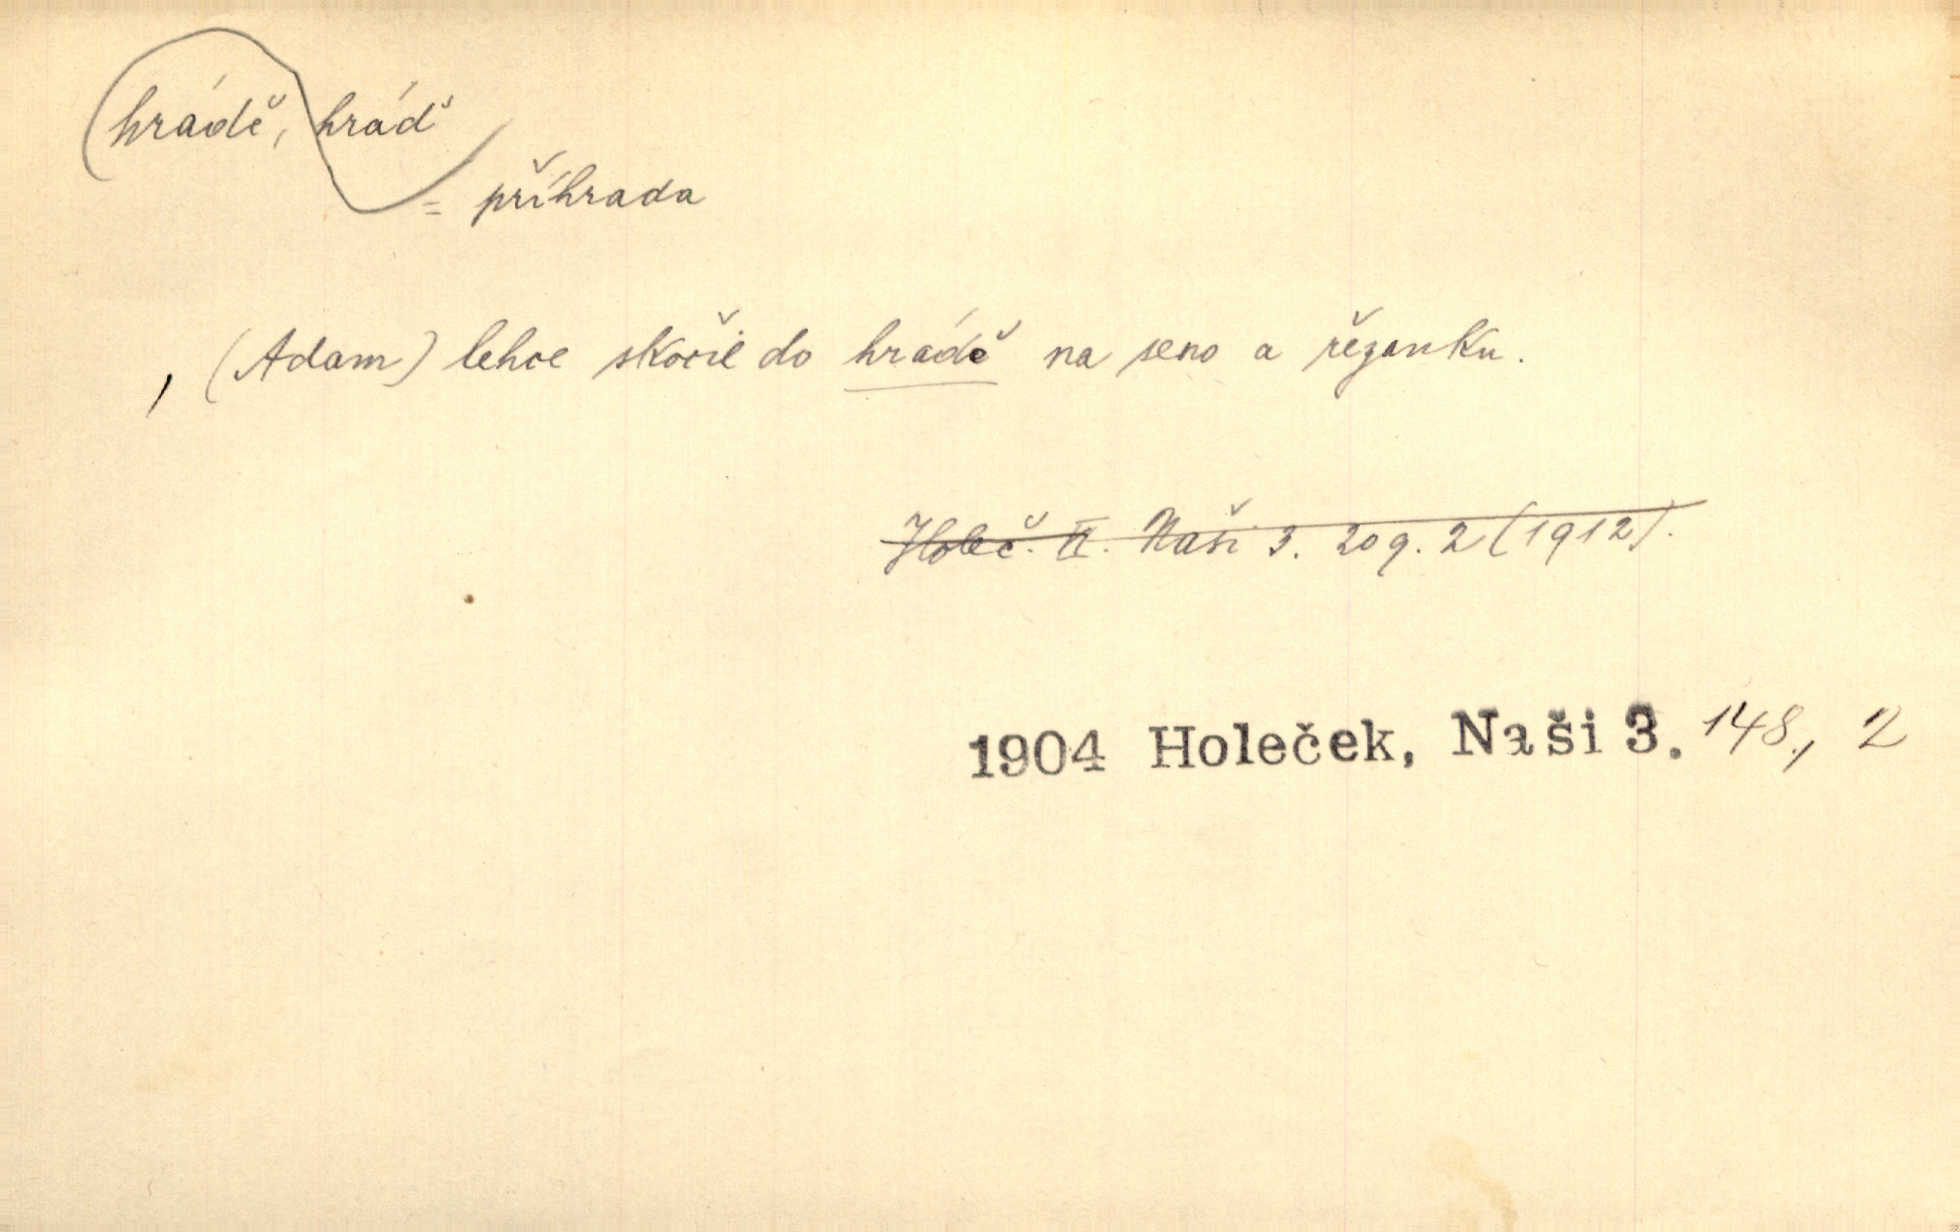 hrádě, hráď
= příhrada
, (Adam) lehce skočil do hrádě na seno a řezanku.
Holeč. II. Naši 3. 209. 2 (1912).
1904 Holeček, Naši 3. 148., 2